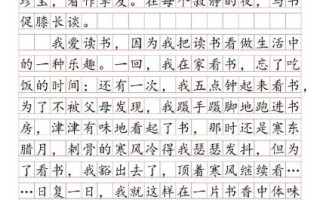 珍宝,着作挚友。在每个寂静的夜,与书
促膝长谈。
我爱读书,因为我把读书看做生活中
的一种乐趣。一回,我在家看书,忘了吃
饭的时间;还有一次,我五点钟起来看书,
为了不被父母发现,我蹑手蹑脚地跑进书
房,津津有味地看起了书,那时还是寒东
腊月,刺骨的寒风冷得我瑟瑟发抖,但为
了看书,我豁出去了,顶着寒风继续看…
…日复一日,我就这样在一片书香中体味